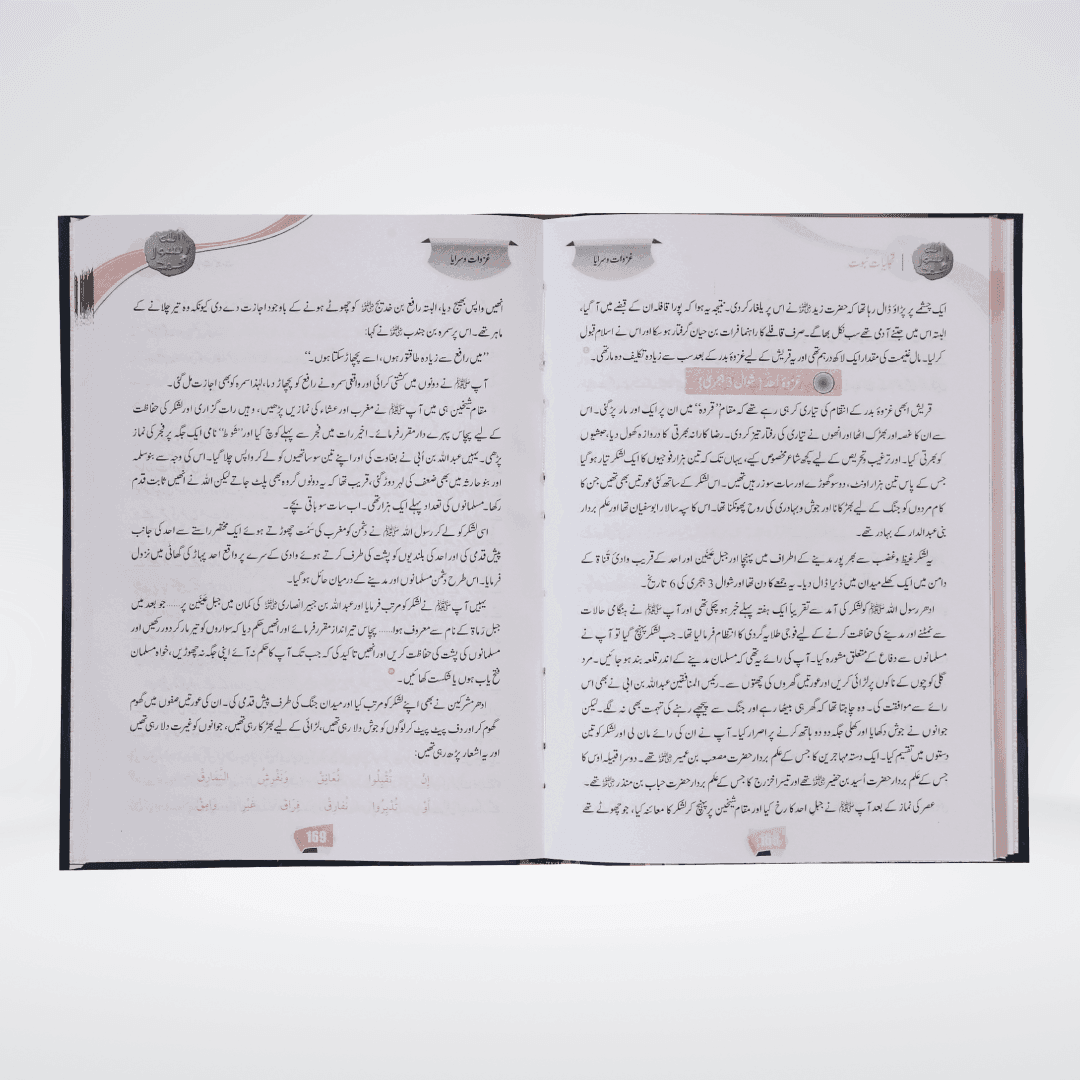 تجلیات نبوت
غزوات و سرایا
ایک چشمے پر پڑاؤ ڈال رہا تھا کہ حضرت زید رضی اللہ عنہ نے اس پر یلغار کر دی۔ نتیجہ یہ ہوا کہ پورا قافلہ ان کے قبضے میں آ گیا،
البتہ اس میں جتنے آدمی تھے سب نکل بھاگے۔ صرف قافلے کا راہنما فرات بن حیان گرفتار ہو سکا اور اس نے اسلام قبول
کر لیا۔ مال غنیمت کی مقدار ایک لاکھ درہم تھی اور یہ قریش کے لیے غزوۂ بدر کے بعد سب سے زیادہ تکلیف دہ مار تھی۔
غزوۂ احد (شوال 3 ہجری)
قریش ابھی غزوۂ بدر کے انتقام کی تیاری کر ہی رہے تھے کہ مقام ”قردہ“ میں ان پر ایک اور مار پڑ گئی۔ اس
سے ان کا غصہ اور بھڑک اٹھا اور انھوں نے تیاری کی رفتار تیز کر دی۔ رضا کارانہ بھرتی کا دروازہ کھول دیا، حبشیوں
کو بھرتی کیا۔ اور ترغیب و تحریض کے لیے کچھ شاعر مخصوص کیے، یہاں تک کہ تین ہزار فوجیوں کا ایک لشکر تیار ہو گیا
جس کے پاس تین ہزار اونٹ، دو سو گھوڑے اور سات سو زرہیں تھیں۔ اس لشکر کے ساتھ کئی عورتیں بھی تھیں جن کا
کام مردوں کو جنگ کے لیے بھڑکانا اور جوش و بہادری کی روح پھونکنا تھا۔ اس کا سپہ سالار ابوسفیان تھا اور علم بردار
بنی عبدالدار کے بہادر تھے۔
یہ لشکر غیظ و غضب سے بھرپور مدینے کے اطراف میں پہنچا اور جبل عینین اور احد کے قریب وادیٔ قناۃ کے
دامن میں ایک کھلے میدان میں ڈیرا ڈال دیا۔ یہ جمعے کا دن تھا اور شوال 3 ہجری کی 6 تاریخ۔
ادھر رسول اللہ ﷺ کو لشکر کی آمد سے تقریباً ایک ہفتہ پہلے خبر ہو چکی تھی اور آپ ﷺ نے ہنگامی حالات
سے نمٹنے اور مدینے کی حفاظت کرنے کے لیے فوجی طلایہ گردی کا انتظام فرما لیا تھا۔ جب لشکر پہنچ گیا تو آپ نے
مسلمانوں سے دفاع کے متعلق مشورہ کیا۔ آپ کی رائے یہ تھی کہ مسلمان مدینے کے اندر قلعہ بند ہو جائیں۔ مرد
گلی کوچوں کے ناکوں پر لڑائی کریں اور عورتیں گھروں کی چھتوں سے۔ رئیس المنافقین عبداللہ بن ابی نے بھی اس
رائے سے موافقت کی۔ وہ چاہتا تھا کہ گھر ہی بیٹھا رہے اور جنگ سے پیچھے رہنے کی تہمت بھی نہ لگے۔ لیکن
جوانوں نے جوش دکھایا اور کھلی جگہ دو دو ہاتھ کرنے پر اصرار کیا۔ آپ نے ان کی رائے مان لی اور لشکر کو تین
دستوں میں تقسیم کیا۔ ایک دستہ مہاجرین کا جس کے علم بردار حضرت مصعب بن عمیر رضی اللہ عنہ تھے۔ دوسرا قبیلہ اوس کا
جس کے علم بردار حضرت اُسید بن حضیر رضی اللہ عنہ تھے اور تیسرا خزرج کا جس کے علم بردار حضرت حباب بن منذر رضی اللہ عنہ تھے۔
عصر کی نماز کے بعد آپ ﷺ نے جبل احد کا رخ کیا اور مقام شیخین پر پہنچ کر لشکر کا معائنہ کیا، جو چھوٹے تھے
168
غزوات و سرایا
اللہ
رسول
محمد
انھیں واپس بھیج دیا، البتہ رافع بن خدیج رضی اللہ عنہ کو چھوٹے ہونے کے باوجود اجازت دے دی کیونکہ وہ تیر چلانے کے
ماہر تھے۔ اس پر سمرہ بن جندب رضی اللہ عنہ نے کہا:
”میں رافع سے زیادہ طاقتور ہوں، اسے پچھاڑ سکتا ہوں۔“
آپ ﷺ نے دونوں میں کشتی کرائی اور واقعی سمرہ نے رافع کو پچھاڑ دیا، لہٰذا سمرہ کو بھی اجازت مل گئی۔
مقام شیخین ہی میں آپ ﷺ نے مغرب اور عشاء کی نمازیں پڑھیں، وہیں رات گزاری اور لشکر کی حفاظت
کے لیے پچاس پہرے دار مقرر فرمائے۔ اخیر رات میں فجر سے پہلے کوچ کیا اور ”شوط“ نامی ایک جگہ پر فجر کی نماز
پڑھی۔ یہیں عبداللہ بن اُبی نے بغاوت کی اور اپنے تین سو ساتھیوں کو لے کر واپس چلا گیا۔ اس کی وجہ سے بنو سلمہ
اور بنو حارثہ میں بھی ضعف کی لہر دوڑ گئی، قریب تھا کہ یہ دونوں گروہ بھی پلٹ جاتے لیکن اللہ نے انھیں ثابت قدم
رکھا۔ مسلمانوں کی تعداد پہلے ایک ہزار تھی۔ اب سات سو باقی بچے۔
اسی لشکر کو لے کر رسول اللہ ﷺ نے دشمن کو مغرب کی سمت چھوڑتے ہوئے ایک مختصر راستے سے احد کی جانب
پیش قدمی کی اور احد کی بلندیوں کو پشت کی طرف کرتے ہوئے وادی کے سرے پر واقع احد پہاڑ کی گھاٹی میں نزول
فرمایا۔ اس طرح دشمن مسلمانوں اور مدینے کے درمیان حائل ہو گیا۔
یہیں آپ ﷺ نے لشکر کو مرتب فرمایا اور عبداللہ بن جبیر انصاری رضی اللہ عنہ کی کمان میں جبل عینین پر ..... جو بعد میں
جبل رماۃ کے نام سے معروف ہوا ..... پچاس تیر انداز مقرر فرمائے اور انھیں حکم دیا کہ سواروں کو تیر مار کر دور رکھیں اور
مسلمانوں کی پشت کی حفاظت کریں اور انھیں تاکید کی کہ جب تک آپ کا حکم نہ آئے اپنی جگہ نہ چھوڑیں، خواہ مسلمان
فتح یاب ہوں یا شکست کھائیں۔
ادھر مشرکین نے بھی اپنے لشکر کو مرتب کیا اور میدان جنگ کی طرف پیش قدمی کی۔ ان کی عورتیں صفوں میں گھوم
گھوم کر اور دف پیٹ پیٹ کر لوگوں کو جوش دلا رہی تھیں، لڑائی کے لیے بھڑکا رہی تھیں، جوانوں کو غیرت دلا رہی تھیں
اور یہ اشعار پڑھ رہی تھیں:
إِنْ تُقْبِلُوا نُعَانِقْ وَنَفْرِشُ النَّمَارِقْ
أَوْ تُدْبِرُوا نُفَارِقْ فِرَاقَ غَيْرِ وَامِقْ
169